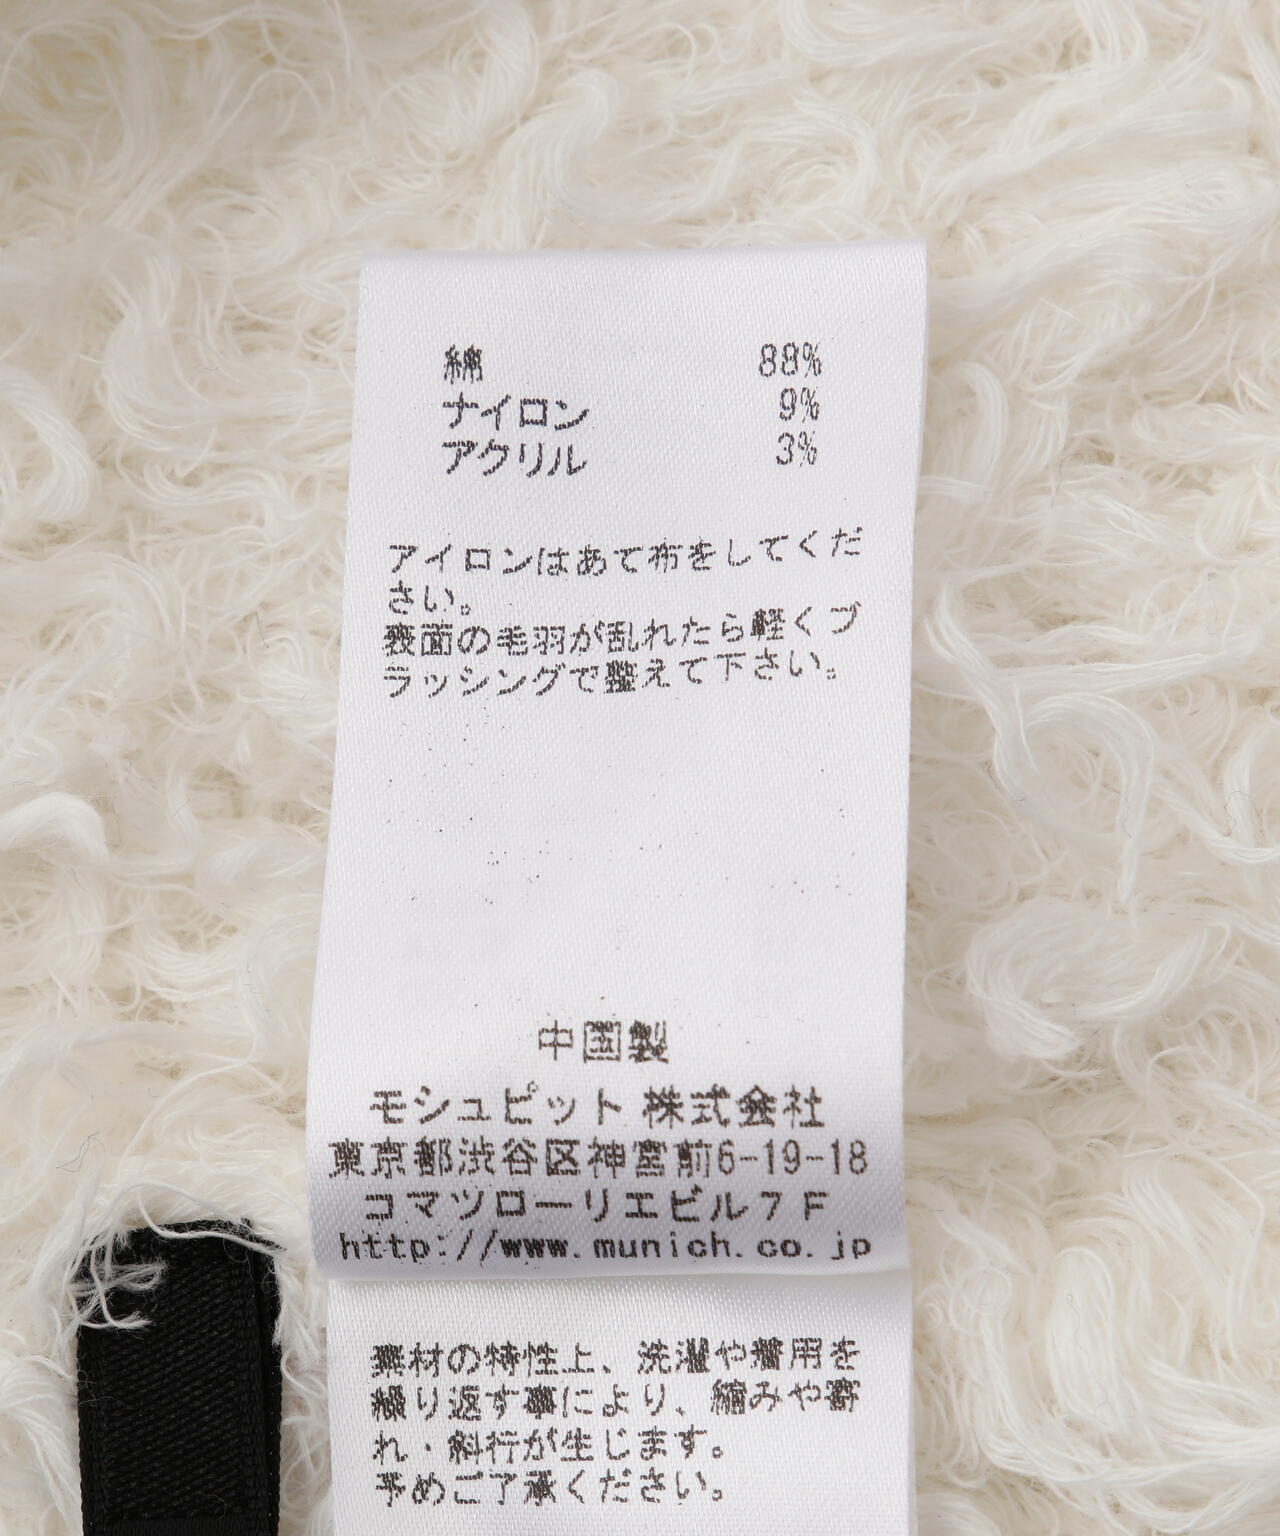 綿 88%
ナイロン 9%
アクリル 3%
アイロンはあて布をしてくだ
さい。
表面の毛羽が乱れたら軽くブ
ラッシングで整えて下さい。
中国製
モシュピット 株式会社
東京都渋谷区神宮前6-19-18
コマツローリエビル7F
http://www.munich.co.jp
素材の特性上、洗濯や着用を
繰り返す事により、縮みや寄
れ・斜行が生じます。
予めご了承ください。